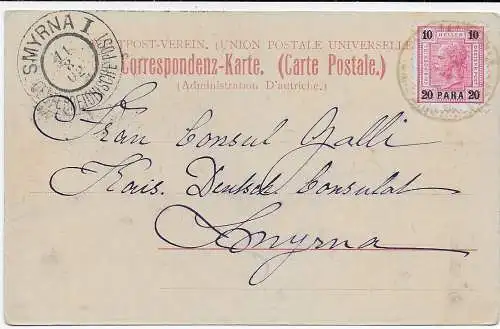 SMYRNA I
TPOST-VEREIN. (UNION POSTALE UNIVERSELLE
Correspondenz-Karte. (Carte Postale.)
(Administration D'autriche.)
10 10
20 PARA 20
Frau Consul Galli
Kais. Deutsche Consulat
Smyrna